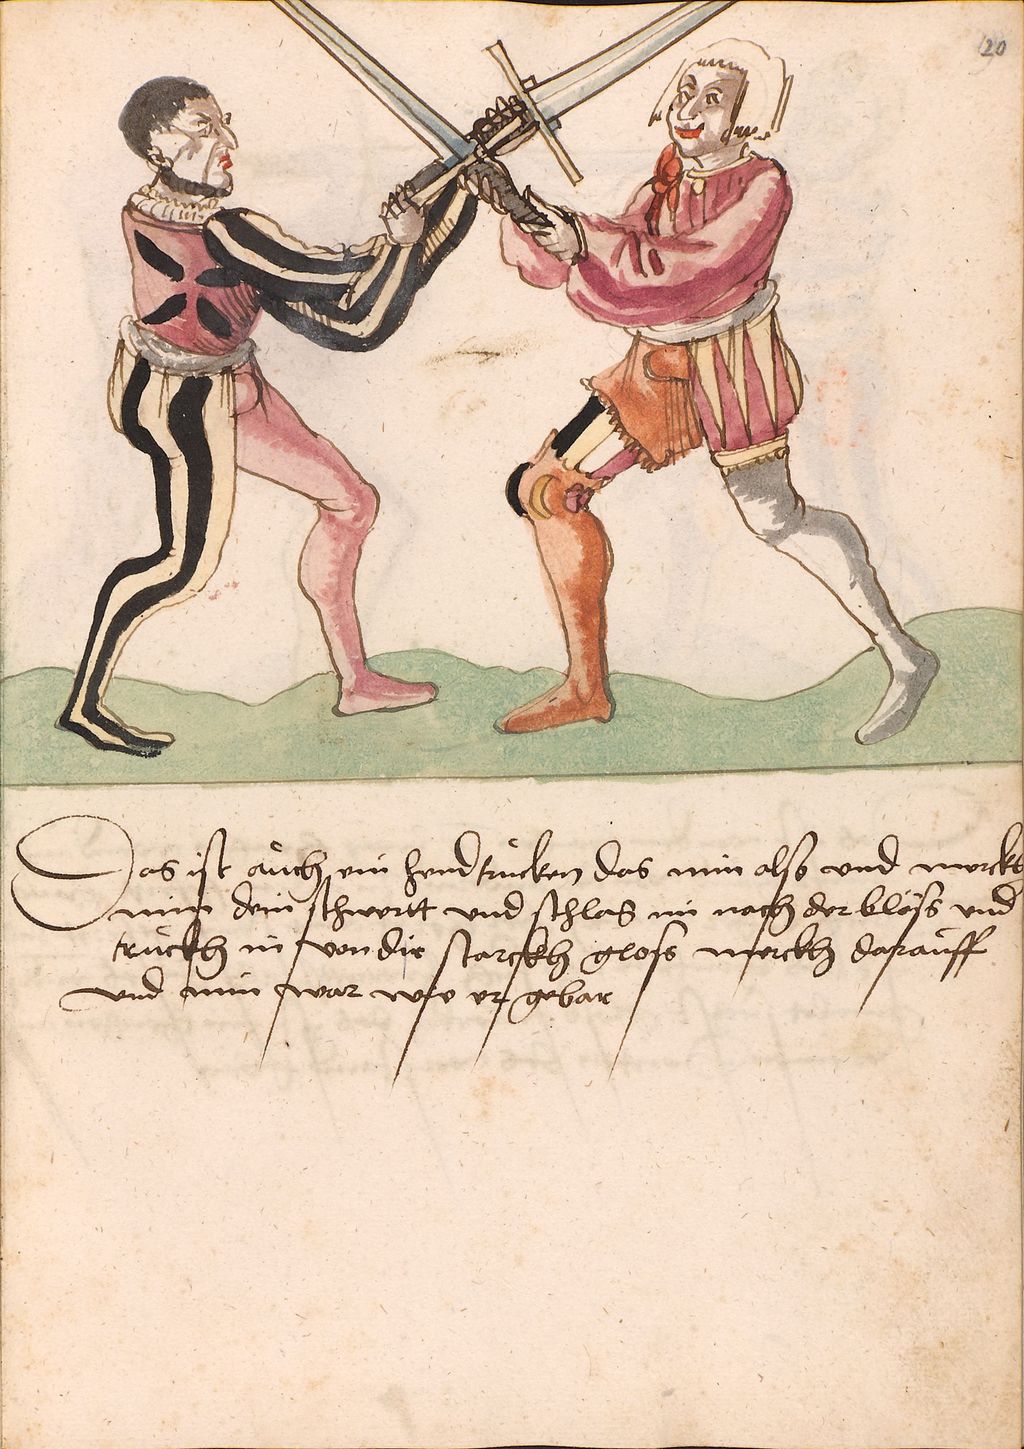 20
Das ist auch ein hendtrucken das nim also und merckh
nim dein schwertt und schlag im nach der blöss und
truckh in von dir starckh gloss merckh darauff
und nim war wie er gebar